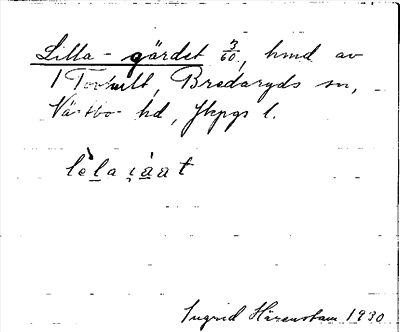 Lilla-gärdet 3/60, hmd av
1 Tovhult, Bredaryds sn,
Västbo hd, Jkpgs l.
Ingrid Härenstam 1930